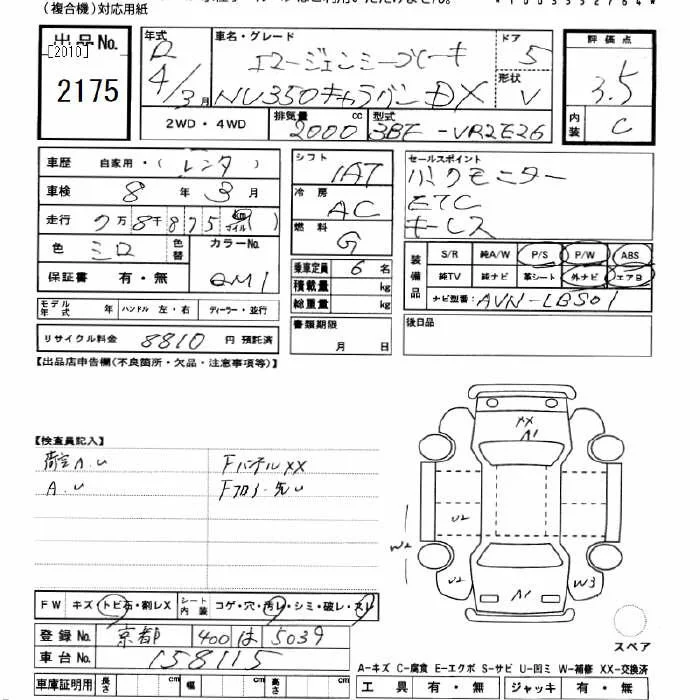 (複合機)対応用紙
出品No. [2010] 2175
年式 R 4/3月
車名・グレード エマージェンシーブレーキ NV350キャラバン DX
ドア 5
形状 V
評価点 3.5
内装 C
2WD・4WD
排気量 2000cc
型式 3BF-VR2E26
車歴 自家用・(レンタ)
車検 8年3月
走行 7万8千875 km マイル
色 シロ 色替 カラーNo. QM1
保証書 有・無
シフト IAT
冷房 AC
燃料 G
乗車定員 6名
積載量 kg
総重量 kg
書類期限 月 日
セールスポイント
バックモニター
ETC
キーレス
装備品 S/R 純A/W P/S P/W ABS
純TV 純ナビ 革シート 外ナビ エアB
ナビ型番: AVN-LBS01
後日品
モデル年式 年 ハンドル 左・右 ディーラー・並行
リサイクル料金 8810 円 預託済
【出品店申告欄(不良箇所・欠品・注意事項等)】
【検査員記入】
荷室A.U FパネルXX
A.U Fフロアー先U
XX
A1
U2
W2
U2
A1
W3
スペア
FW キズ・トビ石・割レX シート内装 コゲ・穴・汚レ・シミ・破レ・スレ
登録No. 京都 400 は 5039
車台No. 158115
車庫証明用 長さ cm 幅 cm 高さ cm
A-キズ C-腐食 E-エクボ S-サビ U-凹ミ W-補修 XX-交換済
工具 有・無 ジャッキ 有・無